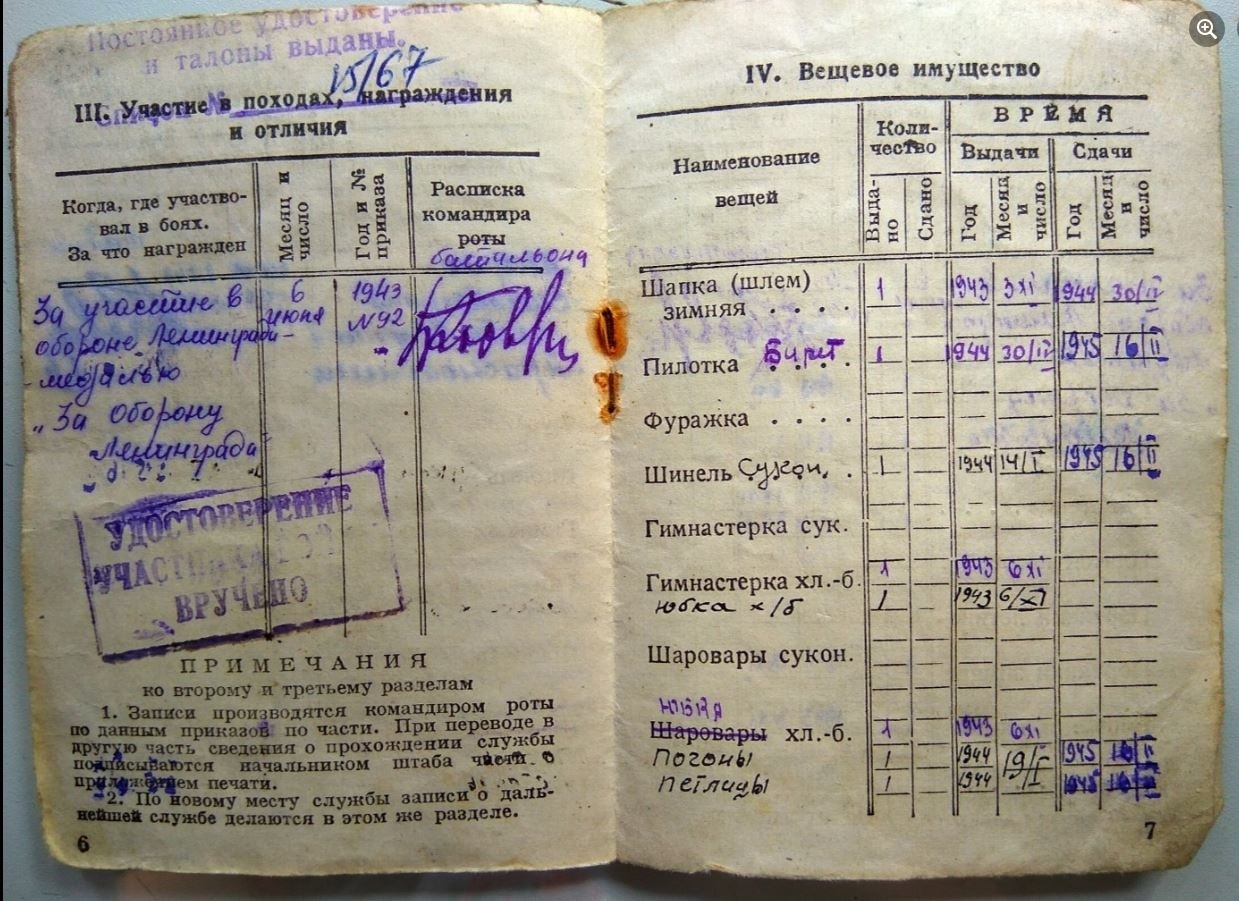 Постоянное удостоверение
и талоны выданы.
15/67
III. Участие в походах, награждения
и отличия
Когда, где участво-
вал в боях.
За что награжден
Месяц и
число
Год и №
приказа
Расписка
командира
роты
батальона
За участие в
обороне Ленингра-
медалью
„За оборону
Ленинграда
6
июня
1943
№92
УДОСТОВЕРЕНИЕ
УЧАСТНИКА
ВРУЧЕНО
ПРИМЕЧАНИЯ
ко второму и третьему разделам
1. Записи производятся командиром роты
по данным приказов по части. При переводе в
другую часть сведения о прохождении службы
подписываются начальником штаба части с
приложением печати.
2. По новому месту службы записи о даль-
нейшей службе делаются в этом же разделе.
6
IV. Вещевое имущество
Наименование
вещей
Коли-
чество
ВРЕМЯ
Выдачи
Сдачи
Выда-
но
Сдано
Год
Месяц
и
число
Год
Месяц
и
число
Шапка (шлем)
зимняя . . . . 1 1943 3 XI 1944 30/IV
Пилотка Берет . . . . 1 1944 30/IV 1945 16/II
Фуражка . . . .
Шинель Сукон. . 1 1944 14/I 1945 16/II
Гимнастерка сук.
Гимнастерка хл.-б. 1 1943 6 XI
юбка х/б 1 1943 6/XI
Шаровары сукон.
Юбка
Шаровары хл.-б. 1 1943 6 XI
Погоны 1 1944 19/I 1945 16/II
петлицы 1 1944 1945 16/II
7